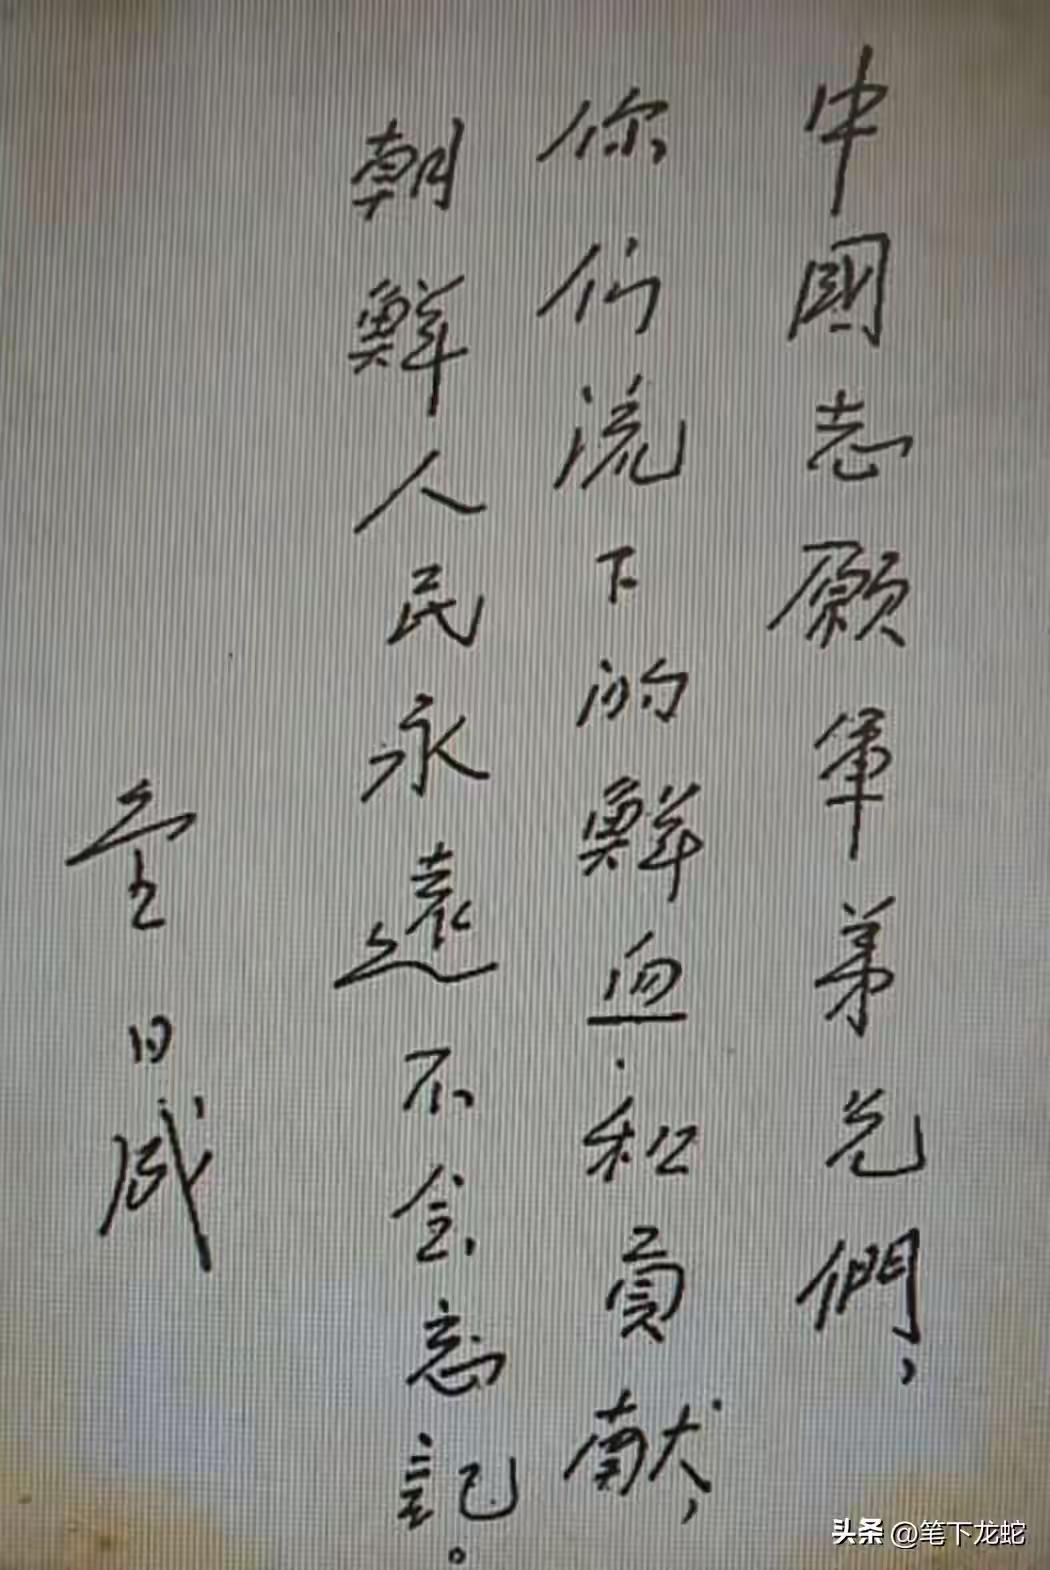 中國志愿軍弟兄們，
你们流下的鲜血和貢献，
朝鲜人民永遠不会忘記。
金日成
头条 @笔下龙蛇